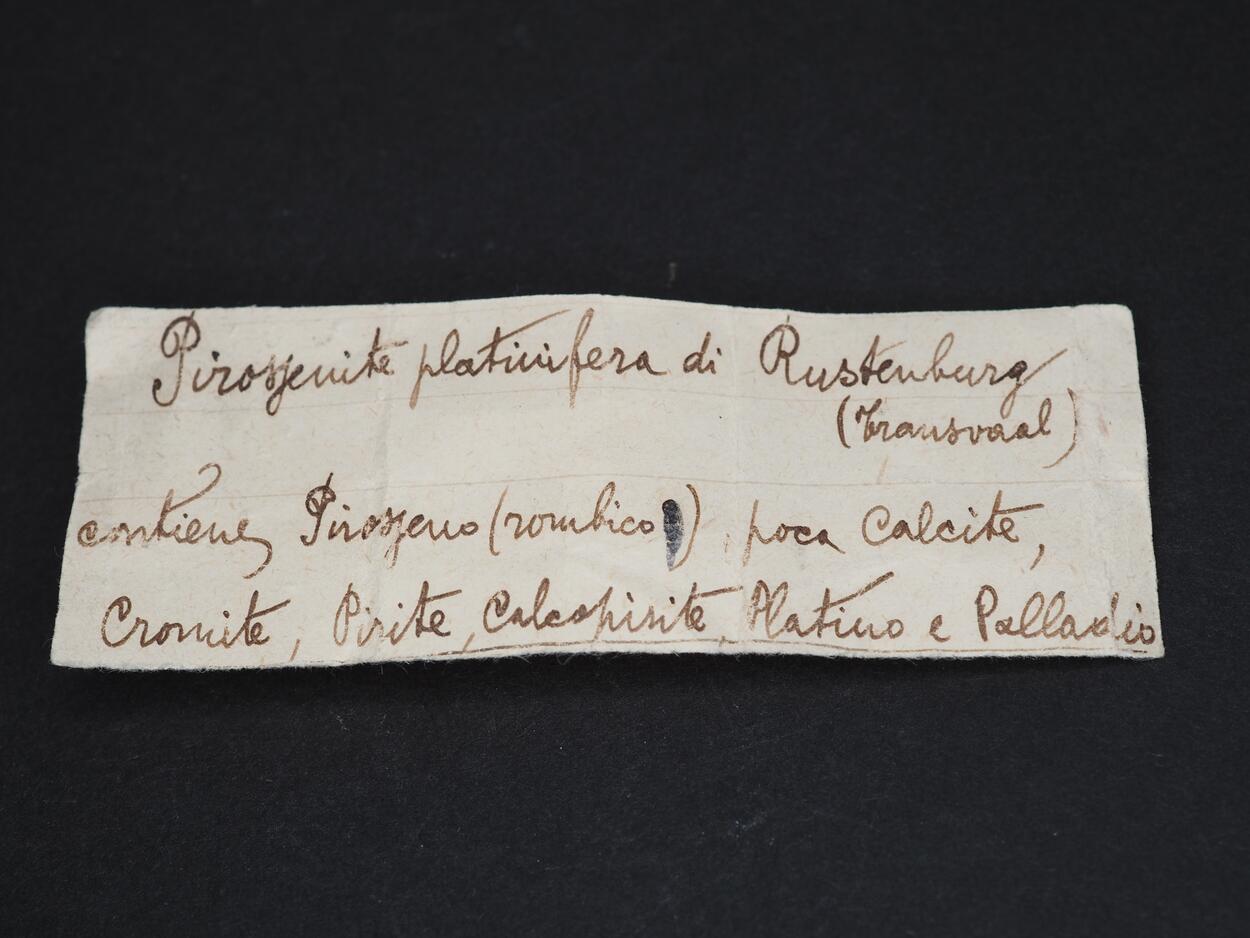 Pirossenite platinifera di Rustenburg
(Transvaal)
contiene Pirosseno (rombico) poca Calcite,
Cromite, Pirite, Calcopirite, Platino e Palladio